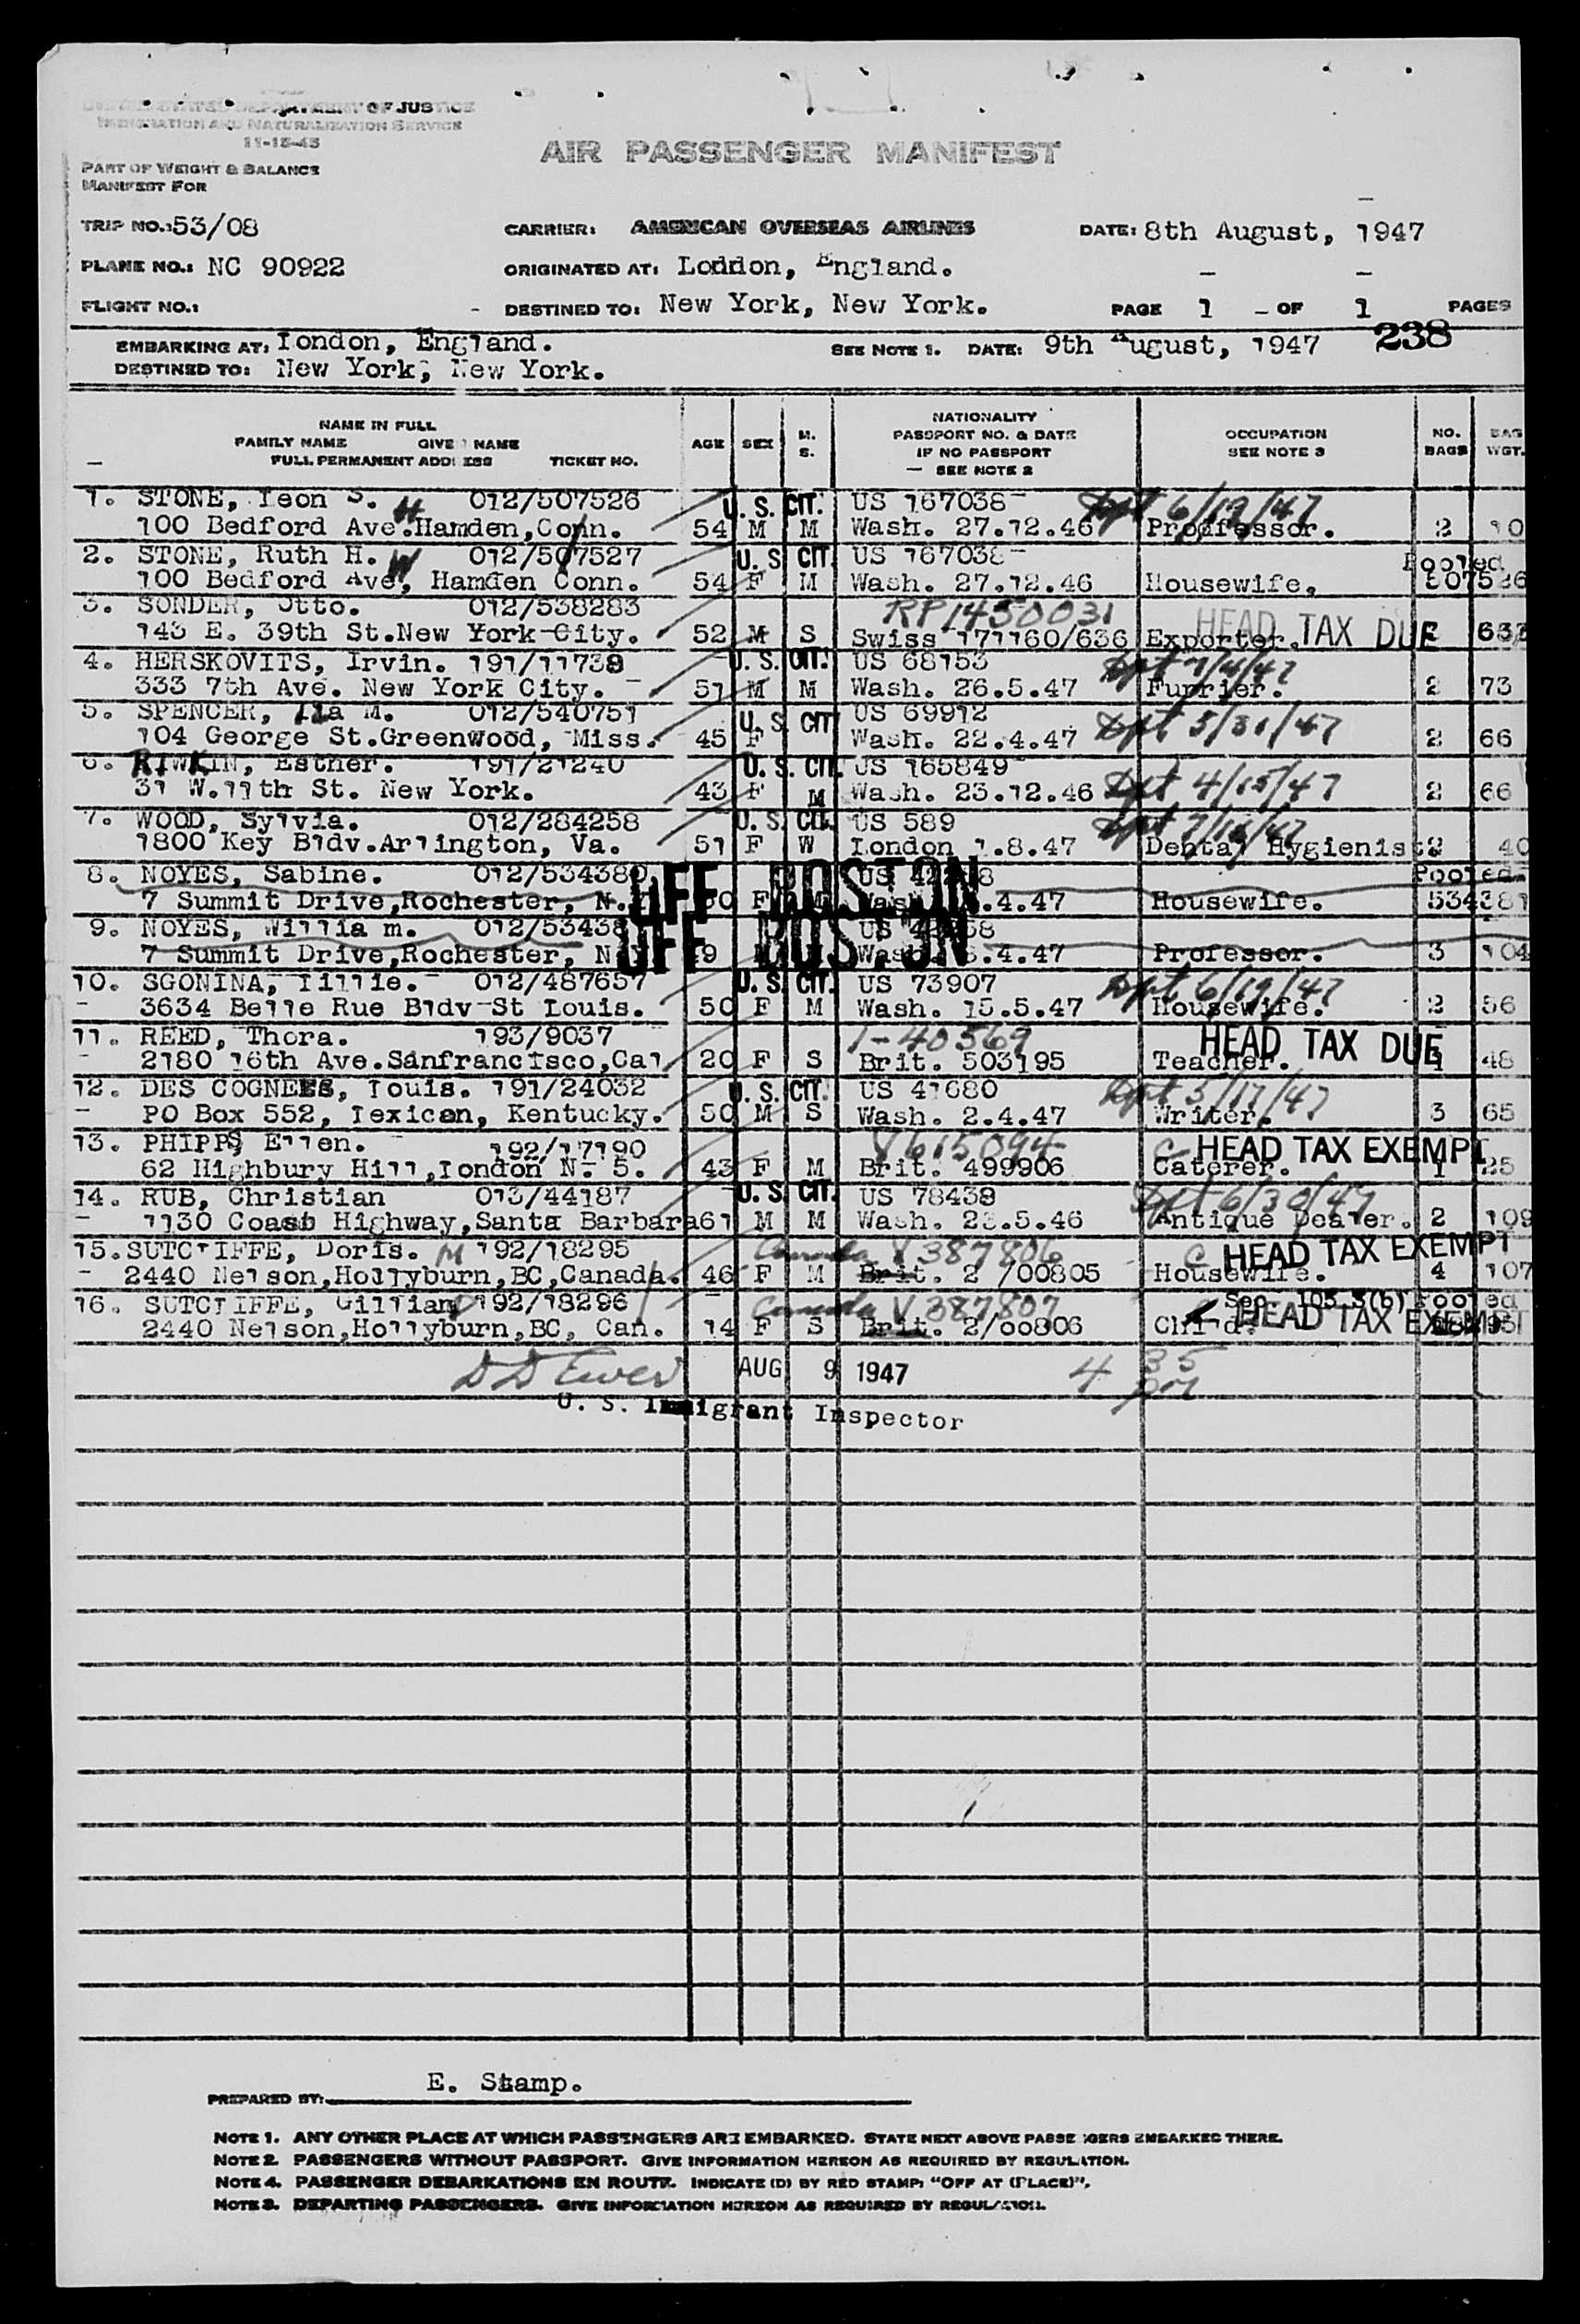 UNITED STATES DEPARTMENT OF JUSTICE
IMMIGRATION AND NATURALIZATION SERVICE
11-15-45
AIR PASSENGER MANIFEST
PART OF WEIGHT & BALANCE
MANIFEST FOR
TRIP NO.: 53/08 CARRIER: AMERICAN OVERSEAS AIRLINES DATE: 8th August, 1947
PLANE NO.: NC 90922 ORIGINATED AT: London, England.
FLIGHT NO.: DESTINED TO: New York, New York. PAGE 1 OF 1 PAGES
238
EMBARKING AT: London, England. SEE NOTE 1. DATE: 9th August, 1947
DESTINED TO: New York, New York.
NAME IN FULL
FAMILY NAME GIVEN NAME
FULL PERMANENT ADDRESS TICKET NO. AGE SEX M. S. NATIONALITY PASSPORT NO. & DATE IF NO PASSPORT SEE NOTE 2 OCCUPATION SEE NOTE 3 NO. BAGS BAG WGT.
1. STONE, Leon S. H 012/507526 U.S. CIT. US 167038 Dpt 6/19/47
100 Bedford Ave. Hamden, Conn. 54 M M Wash. 27.12.46 Proffessor. 2
2. STONE, Ruth H. W 012/507527 U.S. CIT. US 167038 Pooled
100 Bedford Ave, Hamden Conn. 54 F M Wash. 27.12.46 Housewife, 507526
3. SONDER, Otto. 012/538283 RP1450031 HEAD TAX DUE
143 E. 39th St. New York City. 52 M S Swiss 171160/636 Exporter.
4. HERSKOVITS, Irvin. 191/11739 U.S. CIT. US 68153 Dpt 7/4/47
333 7th Ave. New York City. 51 M M Wash. 26.5.47 Furrier. 2 73
5. SPENCER, Ila M. 012/540751 U.S. CIT US 69912 Dpt 5/31/47
104 George St. Greenwood, Miss. 45 F Wash. 22.4.47 2 66
6. RIWKIN, Esther. 191/21240 U.S. CIT. US 165849 Dpt 4/15/47
31 W. 11th St. New York. 43 F M Wash. 23.12.46 2 66
7. WOOD, Sylvia. 012/284258 U.S. CIT. US 589
1800 Key Bldv. Arlington, Va. 51 F W London 1.8.47 Dental Hygienist. 2 40
8. NOYES, Sabine. 012/534380 OFF BOSTON US Pooled
7 Summit Drive, Rochester, N. F M Wash .4.47 Housewife. 534381
9. NOYES, William. OFF BOSTON US
7 Summit Drive, Rochester, N Wash .4.47 Professor. 3 104
10. SGONINA, Lillie. 012/487657 U.S. CIT. US 73907 Dpt 6/19/47
3634 Belle Rue Bldv St Louis. 50 F M Wash. 15.5.47 Housewife. 2 56
11. REED, Thora. 193/9037 T-40569 HEAD TAX DUE
2180 16th Ave. Sanfrancisco, Cal 20 F S Brit. 503195 Teacher. 1 48
12. DES COGNEES, Louis. 191/24032 U.S. CIT. US 41680 Dpt 5/17/47
PO Box 552, Lexican, Kentucky. 50 M S Wash. 2.4.47 Writer. 3 65
13. PHIPPS Ellen. 192/17190 V615094 C HEAD TAX EXEMPT
62 Highbury Hill, London N- 5. 43 F M Brit. 499906 Caterer. 1 25
14. RUB, Christian 013/44187 U.S. CIT. US 78439 Dpt 6/30/47
1130 Coast Highway, Santa Barbara 61 M M Wash. .5.46 Antique Dealer. 2 109
15. SUTCLIFFE, Doris. M 192/18295 Canada V387806 C HEAD TAX EXEMPT
2440 Nelson, Hollyburn, BC, Canada. 46 F M Brit. 2/00805 Housewife. 4 107
16. SUTCLIFFE, Gillian 192/18296 Canada V387807 Sec. 105.3(b) Pooled HEAD TAX EXEMPT
2440 Nelson, Hollyburn, BC, Can. 14 F S Brit. 2/00806 Child.
AUG 9 1947 4 35 PM
U. S. Immigrant Inspector
PREPARED BY: E. Stamp.
NOTE 1. ANY OTHER PLACE AT WHICH PASSENGERS ARE EMBARKED. STATE NEXT ABOVE PASSENGERS EMBARKED THERE.
NOTE 2. PASSENGERS WITHOUT PASSPORT. GIVE INFORMATION HEREON AS REQUIRED BY REGULATION.
NOTE 4. PASSENGER DEBARKATIONS EN ROUTE. INDICATE (D) BY RED STAMP: "OFF AT (PLACE)".
NOTE 3. DEPARTING PASSENGERS. GIVE INFORMATION HEREON AS REQUIRED BY REGULATION.